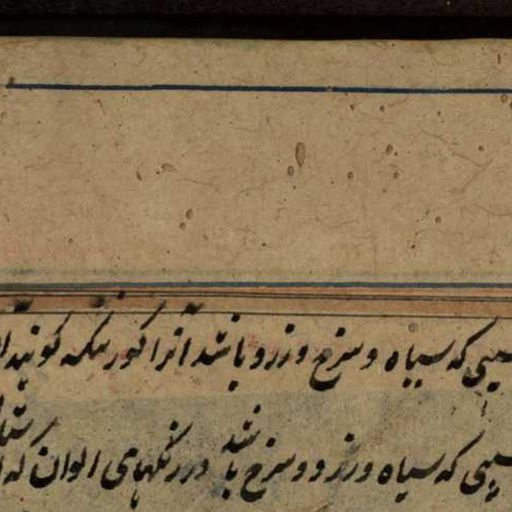 سپی که سیاه و سرخ و زرد باشد آنرا کور نیکه کویند
سپی که سیاه و زرد و سرخ باشد در رنگهای الوان که